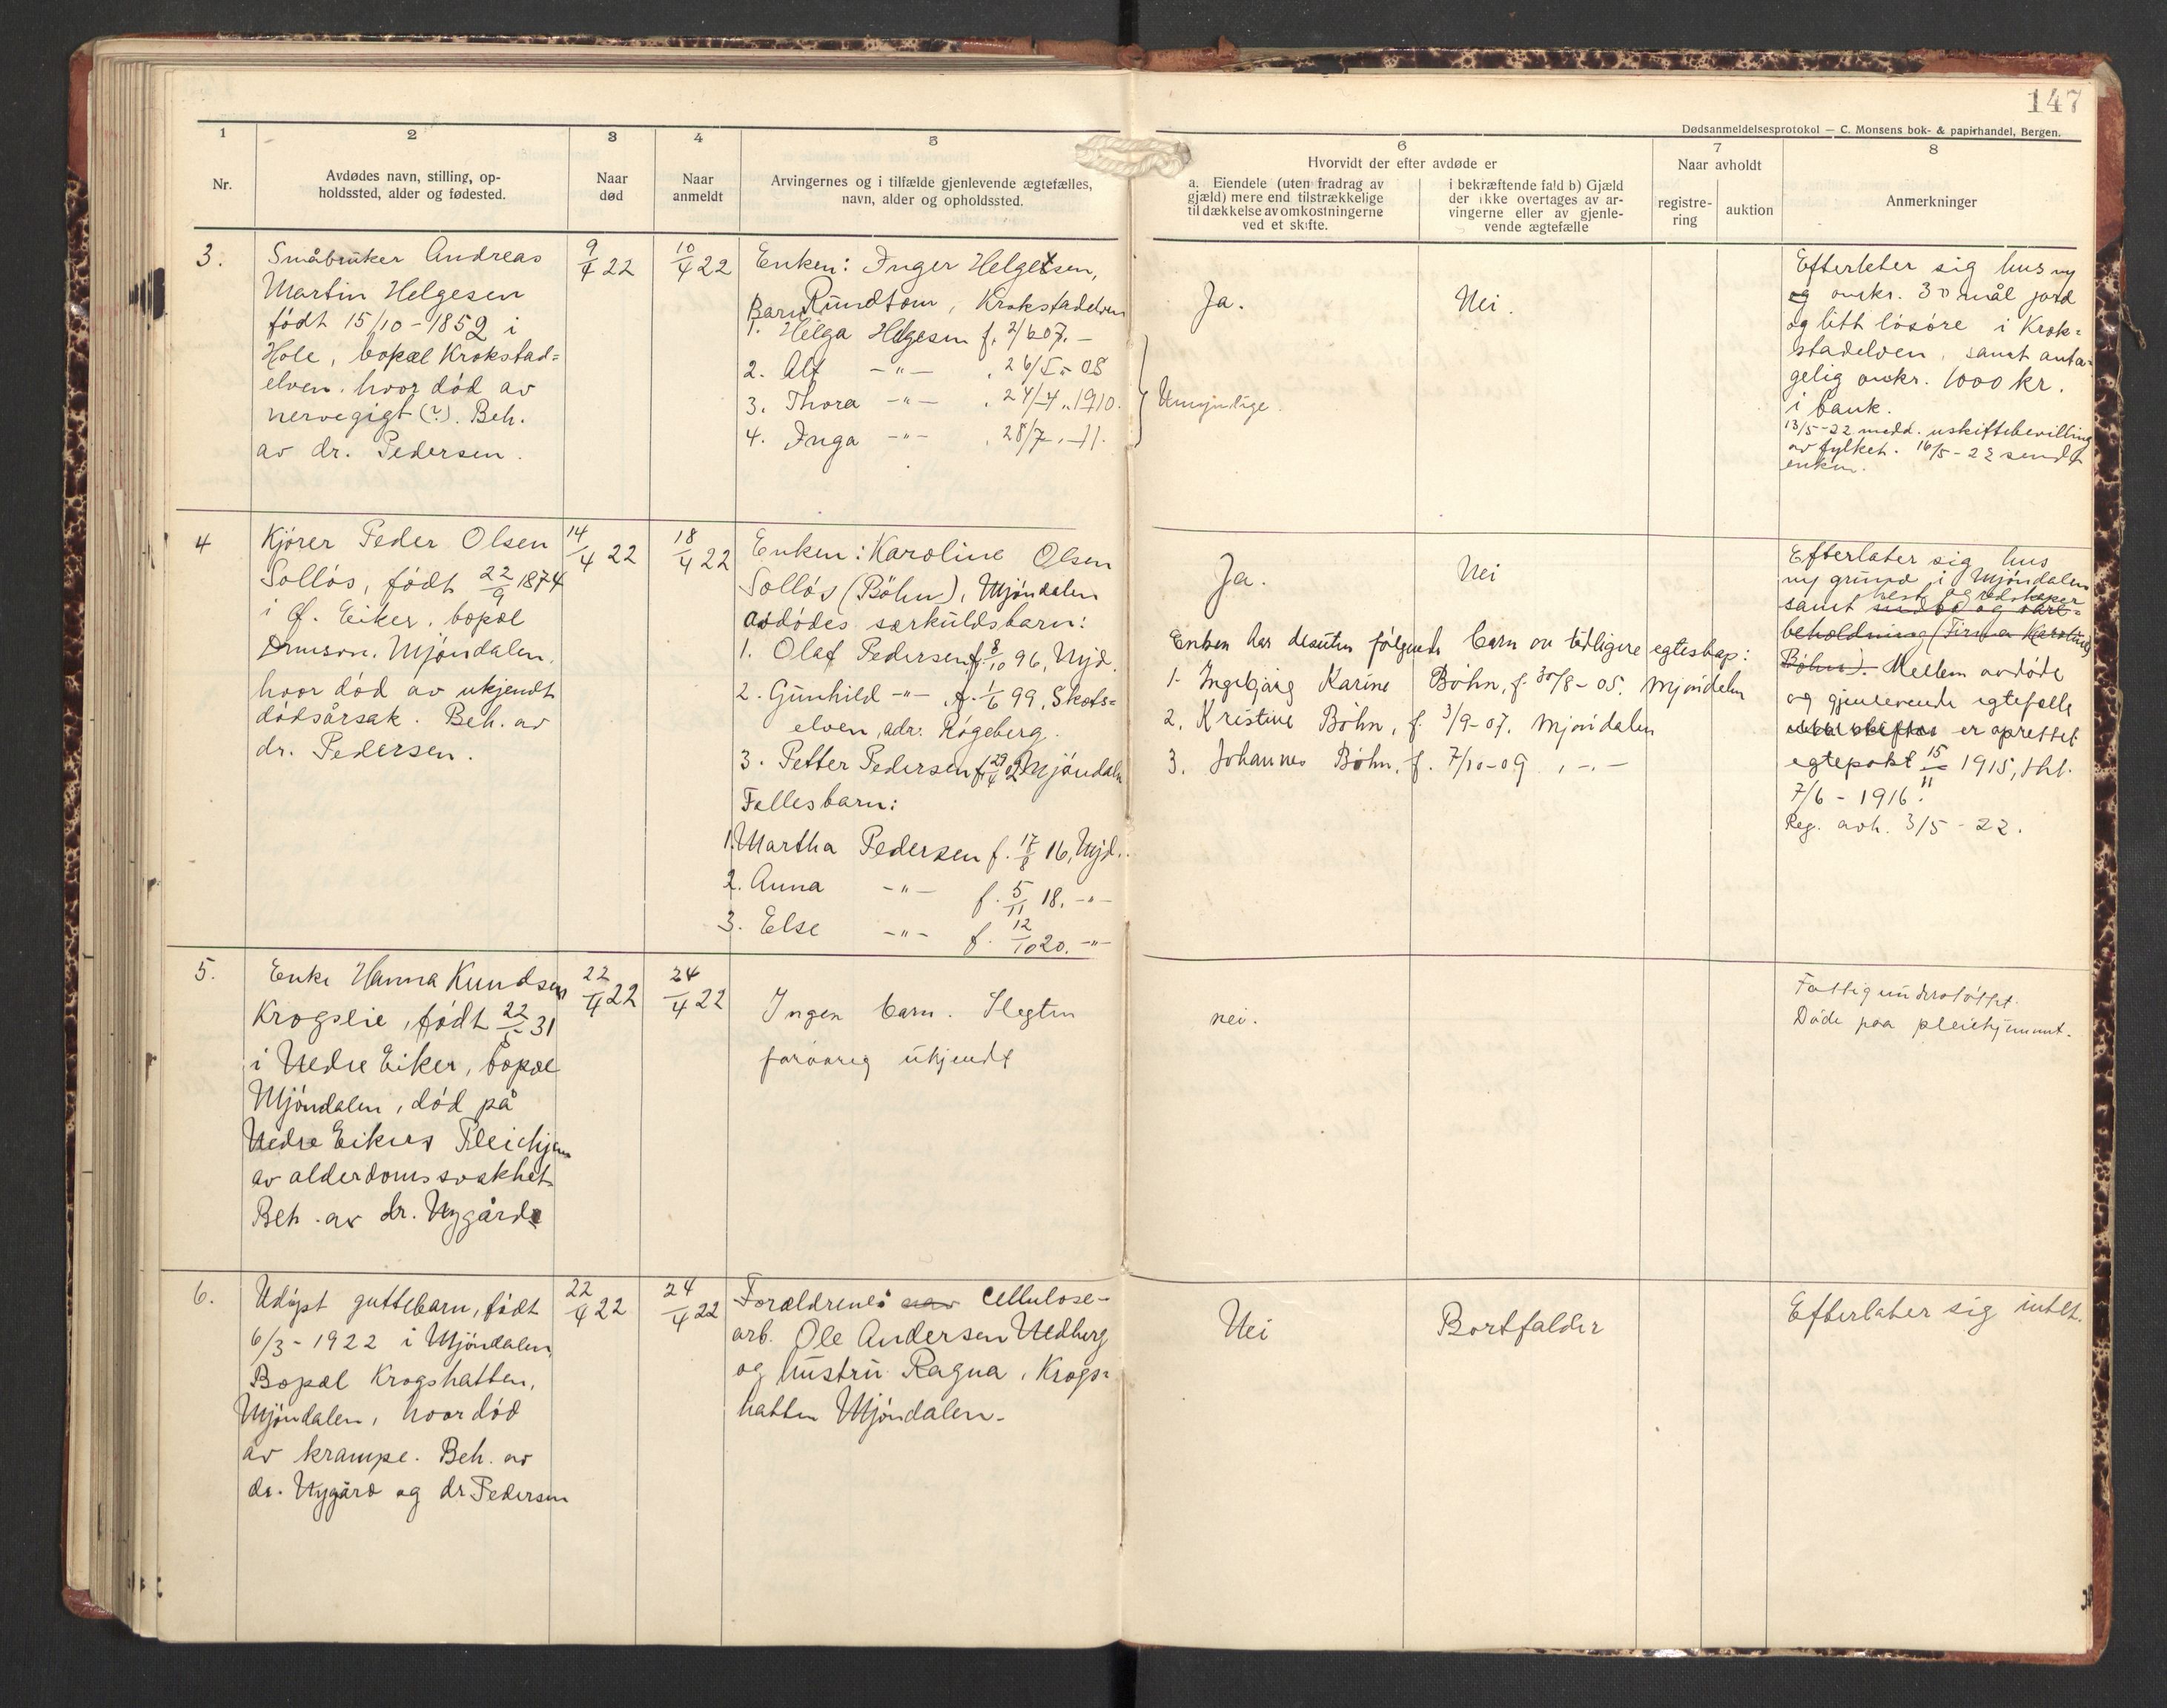 147
Dødsanmeldelsesprotokol — C. Monsens bok- & papirhandel, Bergen.
1
Nr.
2
Avdødes navn, stilling, op-
holdssted, alder og fødested.
3
Naar
død
4
Naar
anmeldt
5
Arvingernes og i tilfælde gjenlevende ægtefælles,
navn, alder og opholdssted.
6
Hvorvidt der efter avdøde er
a. Eiendele (uten fradrag av
gjæld) mere end tilstrækkelige
til dækkelse av omkostningerne
ved et skifte.
i bekræftende fald b) Gjæld
der ikke overtages av ar-
vingerne eller av gjenle-
vende ægtefælle
7
Naar avholdt
registre-
ring
auktion
8
Anmerkninger
3.
Småbruker Andreas
Martin Helgesen
født 15/10-1852 i
Hole, bopæl Krokstad=
elven. hvor død av
nervegigt (?). Beh.
av dr. Pedersen.
9/4 22
10/4 22
Enken: Inger Helgesen,
Rundtom, Krokstadelven
Barn
1. Helga Helgesen f. 2/6 07. -
2. Alf -"- . 26/5 - 08
3. Thora -"- . 24/4 . 1910.
4. Inga -"- . 28/7 . -11.
Ja.
Umyndige.
Nei.
Efterlater sig hus ny
og omkr. 30 mål jord
og litt løsøre i Krok=
stadelven, samt anta=
gelig omkr. 1000 kr.
i bank.
13/5-22 medd. uskiftebevilling
av fylket. 16/5-22 sendt
enken.
4
Kjører Peder Olsen
Solløs, født 22/9 1874
i Ø. Eiker, bopæl
Mjøndalen.
hvor død av ukjendt
dødsårsak. Beh. av
dr. Pedersen.
14/4 22
18/4 22
Enken: Karoline Olsen
Solløs (Bøhn), Mjøndalen
avdødes særkuldsbarn:
1. Olaf Pedersen f. 8/10 96, Mjd.
2. Gunhild -"- f. 1/6 99, Skots=
elven, adr. Røgeberg.
3. Petter Pedersen f. 29/4 02 Mjøndalen
Fellesbarn:
1. Martha Pedersen f. 17/8 16, Mjd.
2. Anna -"- f. 5/11 18. -"-
3. Else -"- f. 12/10 20. -"-
Ja.
Nei
Enken har desuten følgende barn av tidligere egteskap:
1. Ingebjørg Karine Bøhn, f. 30/8-05. Mjøndalen
2. Kristine Bøhn, f. 3/9-07. Mjøndalen
3. Johannes Bøhn, f. 7/10-09 . - . -
Efterlater sig hus
ny grund i Mjøndalen
hest og redskaper
samt
beholdning (Firma Karoline
Bøhn). Mellem avdøde
og gjenlevende egtefelle
er oprettet
egtepakt 15/11 1915, thl.
7/6 - 1916.
Reg. avh. 3/5 - 22.
5.
Enke Hanna Kundsen
Krogslie, født 22/5 31
i Nedre Eiker, bopæl
Mjøndalen, død på
Nedre Eikers Pleiehjem
av alderdomssvakhet
Beh. av dr. Nygård
22/4 22
24/4 22
Ingen barn. Slegten
forøvrig ukjendt
nei.
Fattigunderstøttet.
Døde paa pleiehjemmet.
6.
Udøpt guttebarn, født
6/3-1922 i Mjøndalen,
Bopæl Krogshatten,
Mjøndalen, hvor død
av krampe. Beh. av
dr. Nygård og dr Pedersen
22/4 22
24/4 22
Forældrene: cellulose-
arb. Ole Andersen Nedberg
og hustru Ragna, Krogs=
hatten Mjøndalen.
Nei
Bortfalder
Efterlater sig intet.